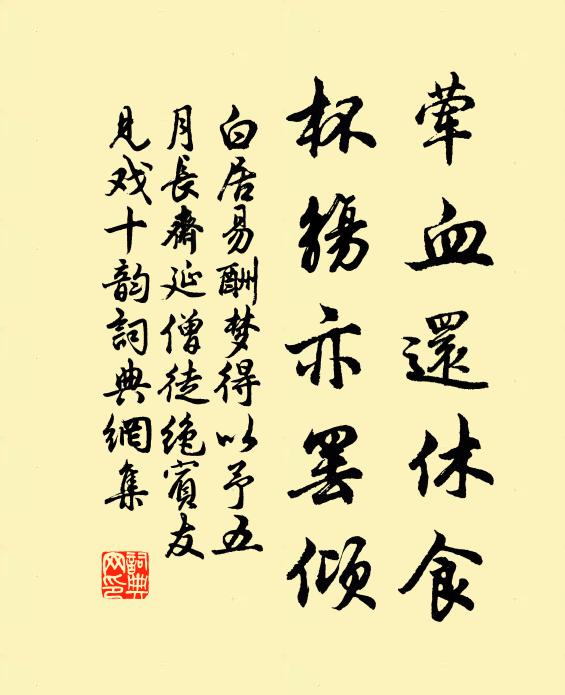 荤血還休食
杯觴亦罢倾
白居易酬梦得以予五
月長齋延僧徒绝賓友
見戏十韵詞典網集
詞典网印